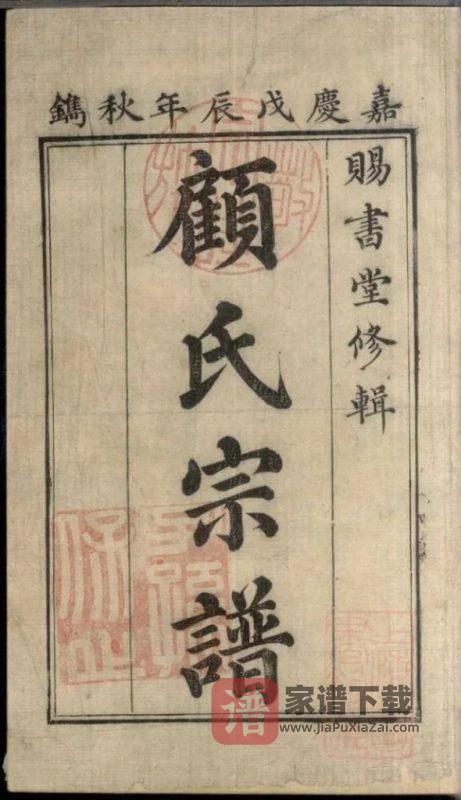 嘉慶戊辰年秋鐫
賜書堂修輯
顧氏宗譜
譜
家谱下载
www.JiaPuXiaZai.com